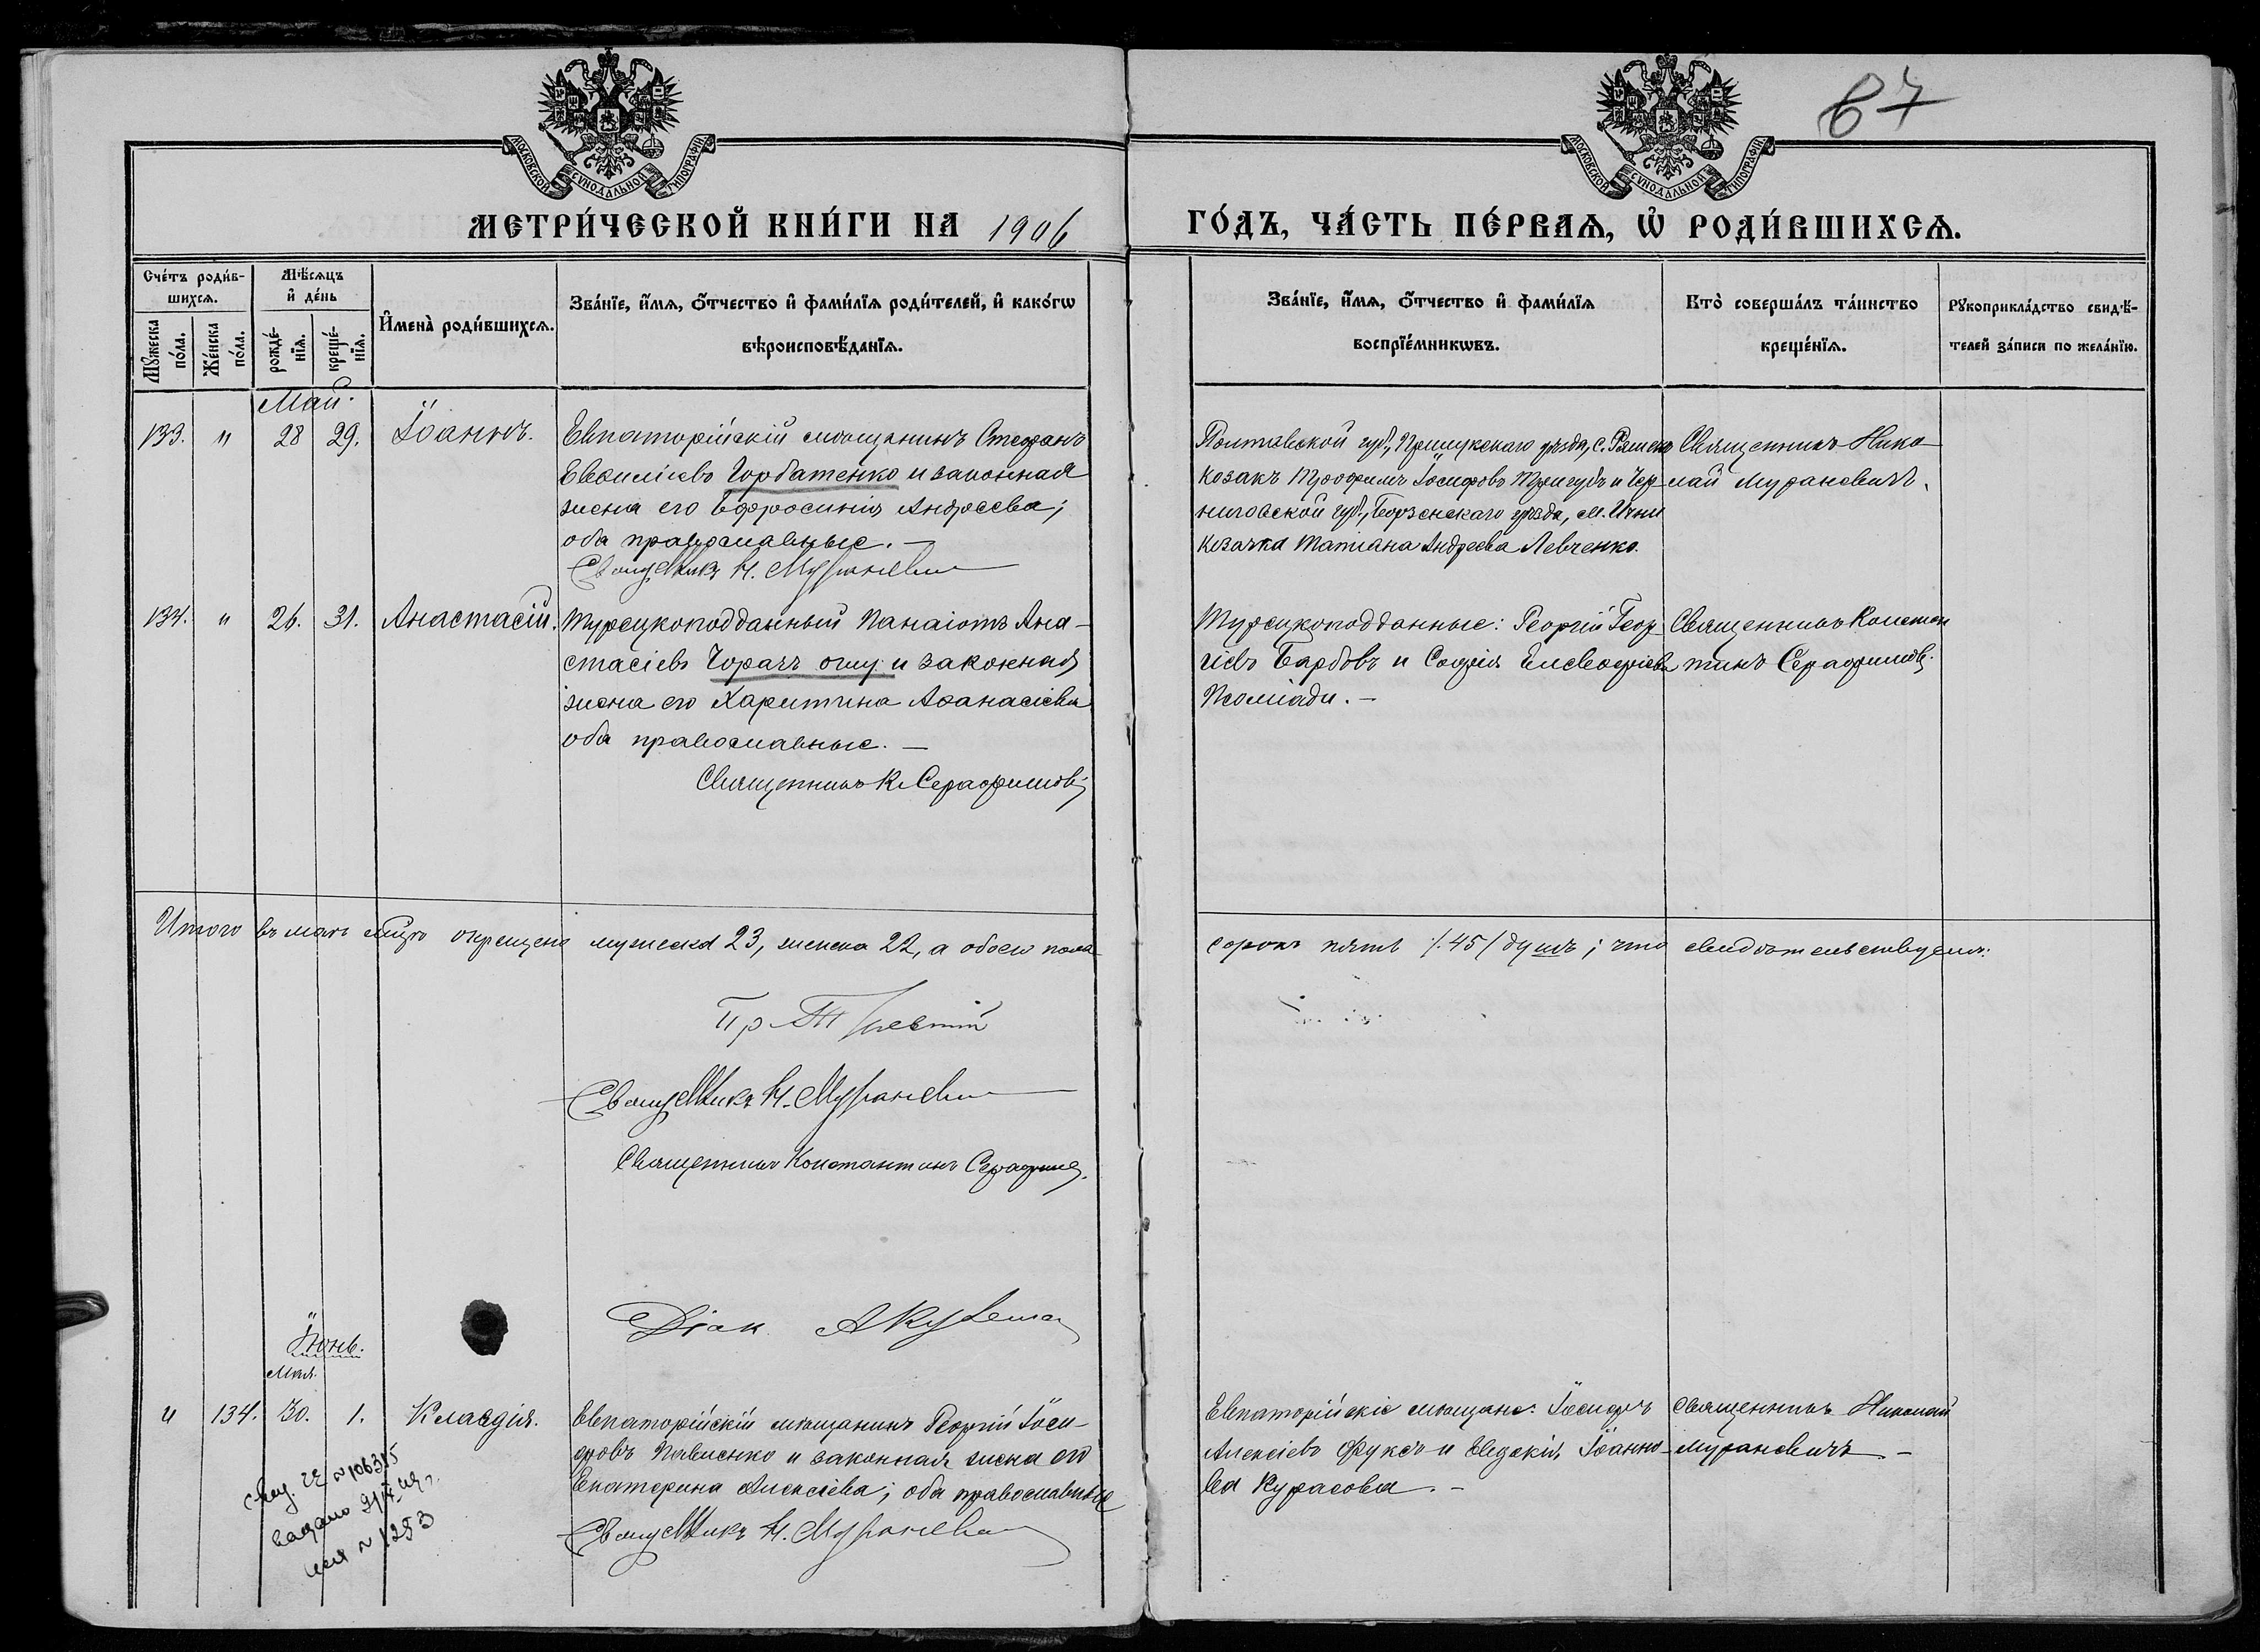 67
МОСКОВСКОЙ СУНОДАЛЬНОЙ ТИПОГРАФІИ
МОСКОВСКОЙ СУНОДАЛЬНОЙ ТИПОГРАФІИ
МЕТРИ́ЧЕСКОЙ КНИ́ГИ НА 1906 ГО́ДЪ, ЧА́СТЬ ПЕ́РВАЯ, Ѡ РОДИ́ВШИХСЯ.
Сче́тъ роди́вшихся.
Му́жеска по́ла.
Же́нска по́ла.
Мѣ́сяцъ и де́нь
рожде́нїя.
креще́нїя.
И҆мена̀ роди́вшихся.
Зва́нїе, и҆́мя, ѻ҆́тчество и҆ фами́лїя роди́телей, и҆ како́гѡ
вѣроисповѣ́данїя.
Зва́нїе, и҆́мя, ѻ҆́тчество и҆ фами́лїя
воспрїе́мникѡвъ.
Кто̀ соверша́лъ та́инство
креще́нїя.
Рꙋкоприкла́дство свидѣ́-
телей за́писи по жела́нїю.
Май.
133. " 28 29. Іоаннъ.
Евпаторійскій мѣщанинъ Стефанъ
Евсиліевъ Горбатенко и законная
жена его Ефросинія Андреева;
оба православные. —
Священникъ Н. Мураневич
Полтавской губ., Прилукскаго уѣзда, с.
козакъ Трофимъ Іосифовъ Тригубъ и Чер-
ниговской губ., Борзенскаго уѣзда, м. Ични
козачка Татіана Андреева Левченко.
Священникъ Нико-
лай Мураневичъ.
134. " 26. 31. Анастасій.
Турецкоподданный Панаіотъ Ана-
стасіевъ Чорачъ оглу и законная
жена его Харитина Аѳанасіева
оба православные. —
Священникъ К. Серафимовъ
Турецкоподданные: Георгій Геор-
гіевъ Барбовъ и Софія Елевферіева
Псоміади. —
Священникъ Констан
тинъ Серафимовъ.
Итого въ маѣ мѣцѣ окрещено мужеска 23, женска 22, а обоего пола
сорокъ пять /45/ душъ; что свидѣтельствуемъ:
Священникъ Н. Мураневич
Священникъ Константинъ Серафимов.
Діак.
Іюнь.
Мая.
" 134. 30. 1. Клавдія.
Евпаторійскій мѣщанинъ Георгій Іоси-
фовъ Павленко и законная жена его
Екатерина Алексіева; оба православные
Священникъ Н. Мураневич
Евпаторійскіе мѣщане: Іосифъ
Алексіевъ Фуксъ и Евдокія Іоанно-
ва Курасова. —
Священникъ Николай
Мураневичъ —
№ 106315
выдано
№ 1253